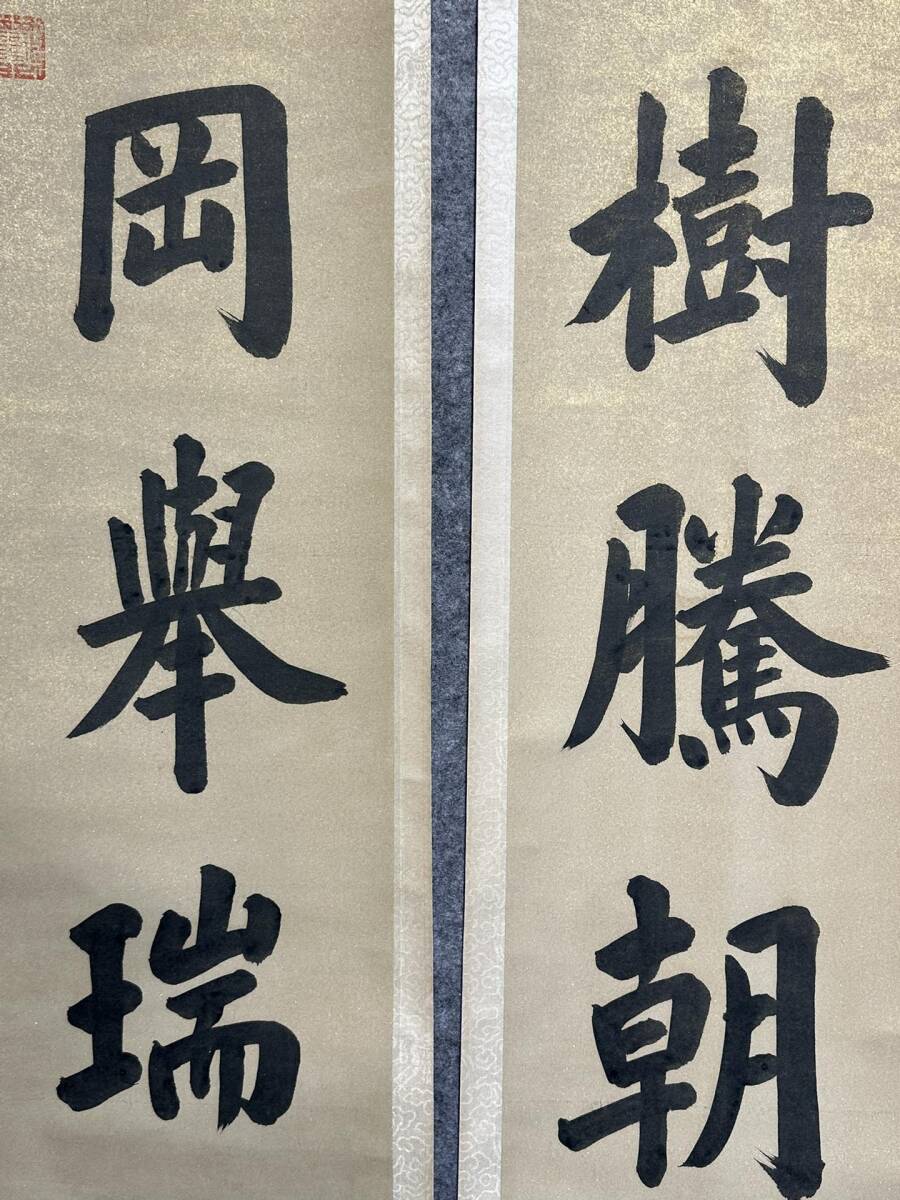 樹騰朝
岡舉瑞